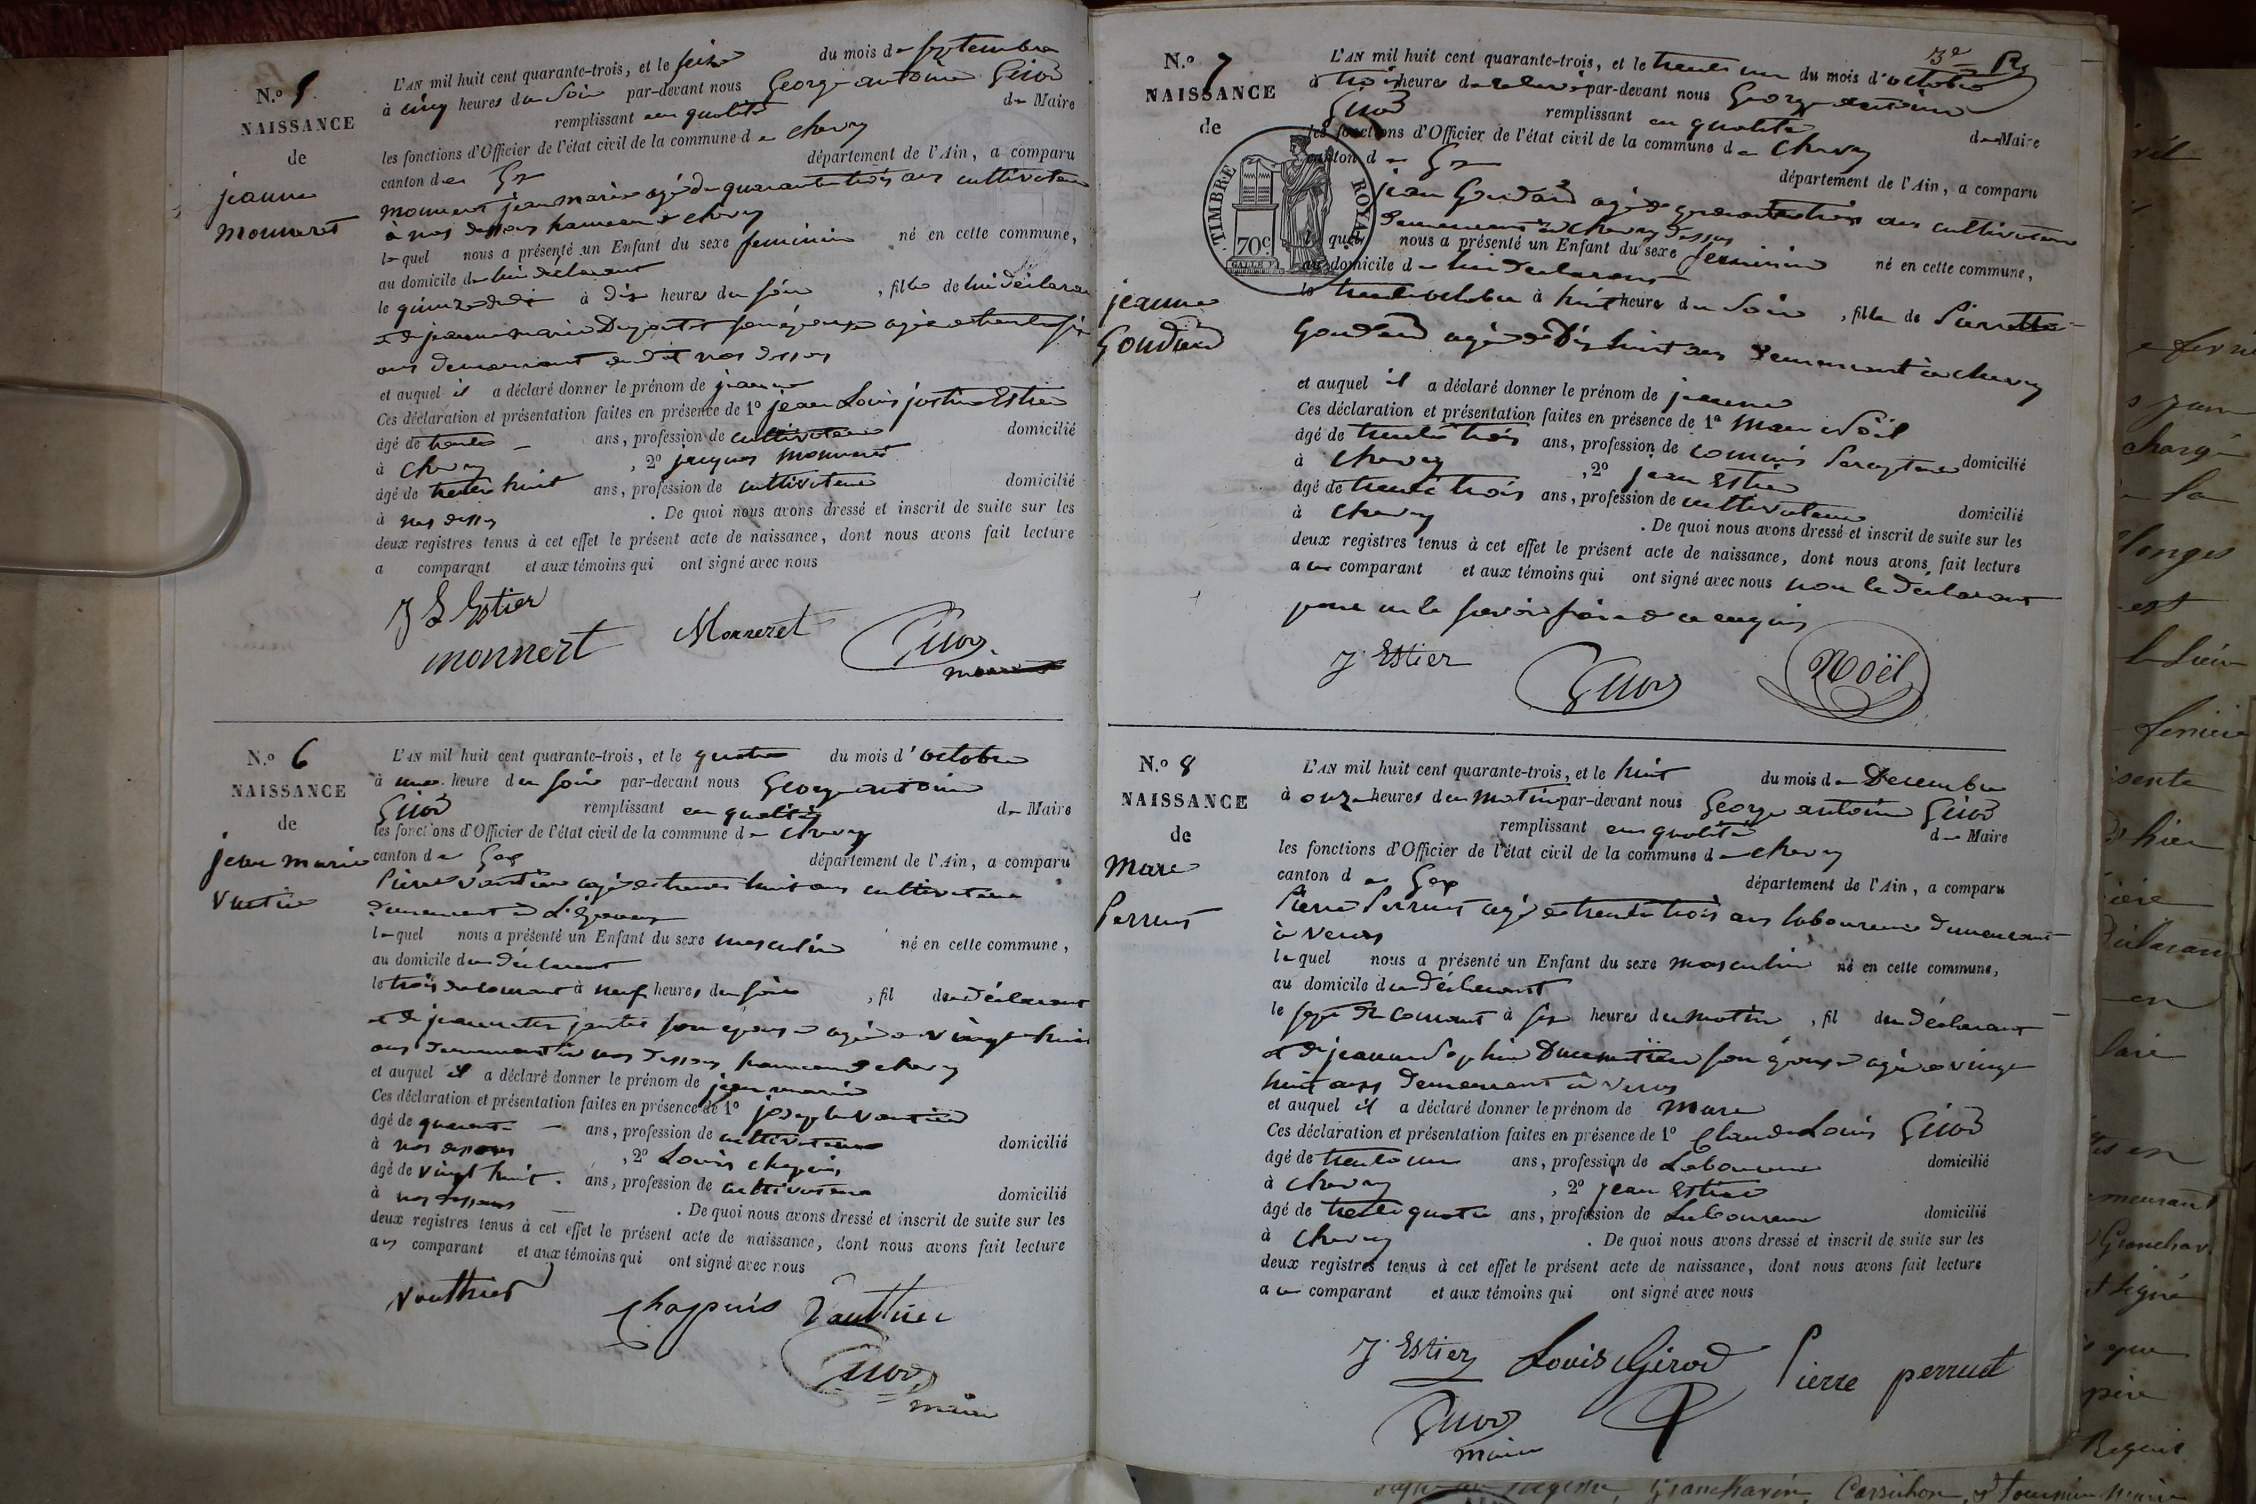 N.° 5
NAISSANCE
de
jeanne
monneret
L'AN mil huit cent quarante-trois, et le seize du mois de septembre
à cinq heures du soir par-devant nous George antoine Girod
remplissant en qualité de Maire
les fonctions d'Officier de l'état civil de la commune de chevry
canton de Gex département de l'Ain, a comparu
monneret jean marie agé de quarante trois ans cultivateur
à nos dessous hameau de chevry
lequel nous a présenté un Enfant du sexe feminin né en cette commune,
au domicile de lui déclarant
le quinze dudit à dix heures du soir, fille de lui déclarant
et de jeanne marie son épouse agée de trente six
ans demeurant audit nos dessous
et auquel il a déclaré donner le prénom de jeanne
Ces déclaration et présentation faites en présence de 1° jean Louis justin Estier
âgé de trente ans, profession de cultivateur domicilié
à chevry, 2° jacques monneret
âgé de trente huit ans, profession de cultivateur domicilié
à nos dessous. De quoi nous avons dressé et inscrit de suite sur les
deux registres tenus à cet effet le présent acte de naissance, dont nous avons fait lecture
a comparant et aux témoins qui ont signé avec nous
J L Estier
monneret Monneret Girod
N.° 6
NAISSANCE
de
jean marie
Vautier
L'AN mil huit cent quarante-trois, et le quatre du mois d'octobre
à une heure du soir par-devant nous George antoine
Girod remplissant en qualité de Maire
les fonctions d'Officier de l'état civil de la commune de chevry
canton de Gex département de l'Ain, a comparu
Pierre Vautier agé de trente huit ans cultivateur
demeurant à
lequel nous a présenté un Enfant du sexe masculin né en cette commune,
au domicile du déclarant
le trois du courant à neuf heures du soir, fil du déclarant
et de son épouse agée de vingt huit
ans demeurant à nos dessous hameau de chevry
et auquel il a déclaré donner le prénom de jean marie
Ces déclaration et présentation faites en présence de 1° joseph Vautier
âgé de quarante ans, profession de cultivateur domicilié
à nos dessous, 2° Louis chapuis
âgé de vingt huit ans, profession de cultivateur domicilié
à nos dessous. De quoi nous avons dressé et inscrit de suite sur les
deux registres tenus à cet effet le présent acte de naissance, dont nous avons fait lecture
au comparant et aux témoins qui ont signé avec nous
Vauthier Chappuis Vauthier
Girod
maire
3e
N.° 7
NAISSANCE
de
jeanne
Goudard
TIMBRE ROYAL
70c
L'AN mil huit cent quarante-trois, et le trente un du mois d'octobre
à trois heures de relevé par-devant nous George antoine
Girod remplissant en qualité de Maire
les fonctions d'Officier de l'état civil de la commune de chevry
canton de Gex département de l'Ain, a comparu
jean Goudard agé de quarante trois ans cultivateur
demeurant à chevry dessous
lequel nous a présenté un Enfant du sexe feminin né en cette commune,
au domicile de lui déclarant
le trente octobre à huit heures du soir, fille de Pierrette
Goudard agée de Dix huit ans demeurant à chevry
et auquel il a déclaré donner le prénom de jeanne
Ces déclaration et présentation faites en présence de 1° Marc Noël
âgé de trente trois ans, profession de commis domicilié
à chevry, 2° jean Estier
âgé de trente trois ans, profession de cultivateur domicilié
à chevry. De quoi nous avons dressé et inscrit de suite sur les
deux registres tenus à cet effet le présent acte de naissance, dont nous avons fait lecture
au comparant et aux témoins qui ont signé avec nous non le déclarant
pour ne le savoir faire de ce enquis
J. Estier Girod Noël
N.° 8
NAISSANCE
de
Marc
Perrust
L'AN mil huit cent quarante-trois, et le huit du mois de Decembre
à onze heures du matin par-devant nous George antoine Girod
remplissant en qualité de Maire
les fonctions d'Officier de l'état civil de la commune de chevry
canton de Gex département de l'Ain, a comparu
Pierre Perrust agé de trente trois ans laboureur demeurant
à Veraz
lequel nous a présenté un Enfant du sexe masculin né en cette commune,
au domicile du déclarant
le sept du courant à six heures du matin, fil du déclarant
et de jeanne Sophie son épouse agée de vingt
huit ans demeurant à Veraz
et auquel il a déclaré donner le prénom de Marc
Ces déclaration et présentation faites en présence de 1° Claude Louis Girod
âgé de trente un ans, profession de Laboureur domicilié
à chevry, 2° jean Estier
âgé de trente quatre ans, profession de Laboureur domicilié
à chevry. De quoi nous avons dressé et inscrit de suite sur les
deux registres tenus à cet effet le présent acte de naissance, dont nous avons fait lecture
au comparant et aux témoins qui ont signé avec nous
J. Estier Louis Girod Pierre perrust
Girod
maire